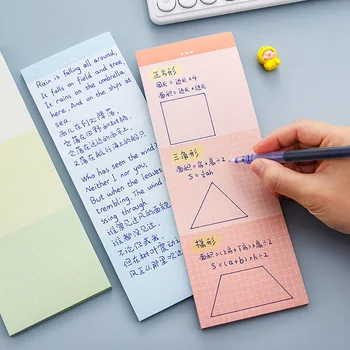 Rain is falling all around,
It falls on field and tree,
It rains on the umbrella
here, And on the ships at
sea.
雨儿在到处降落,
它落在田野和树梢,
它落在这边的雨伞上,
又落在航行海上的船只
Who has seen the wind?
Neither I nor you;
But when the leaves
trembling, The wind
ssing through
谁看见风的面貌
谁都没见过,
不论你或我
但在树叶震动之
风正从那里吹过
正方形
周长 = 边长×4
面积 = 边长×边长
三角形
面积 = 底×高÷2
S = ½ah
梯形
面积 = (上底+下底)×高÷2
S = (a+b)×h÷2